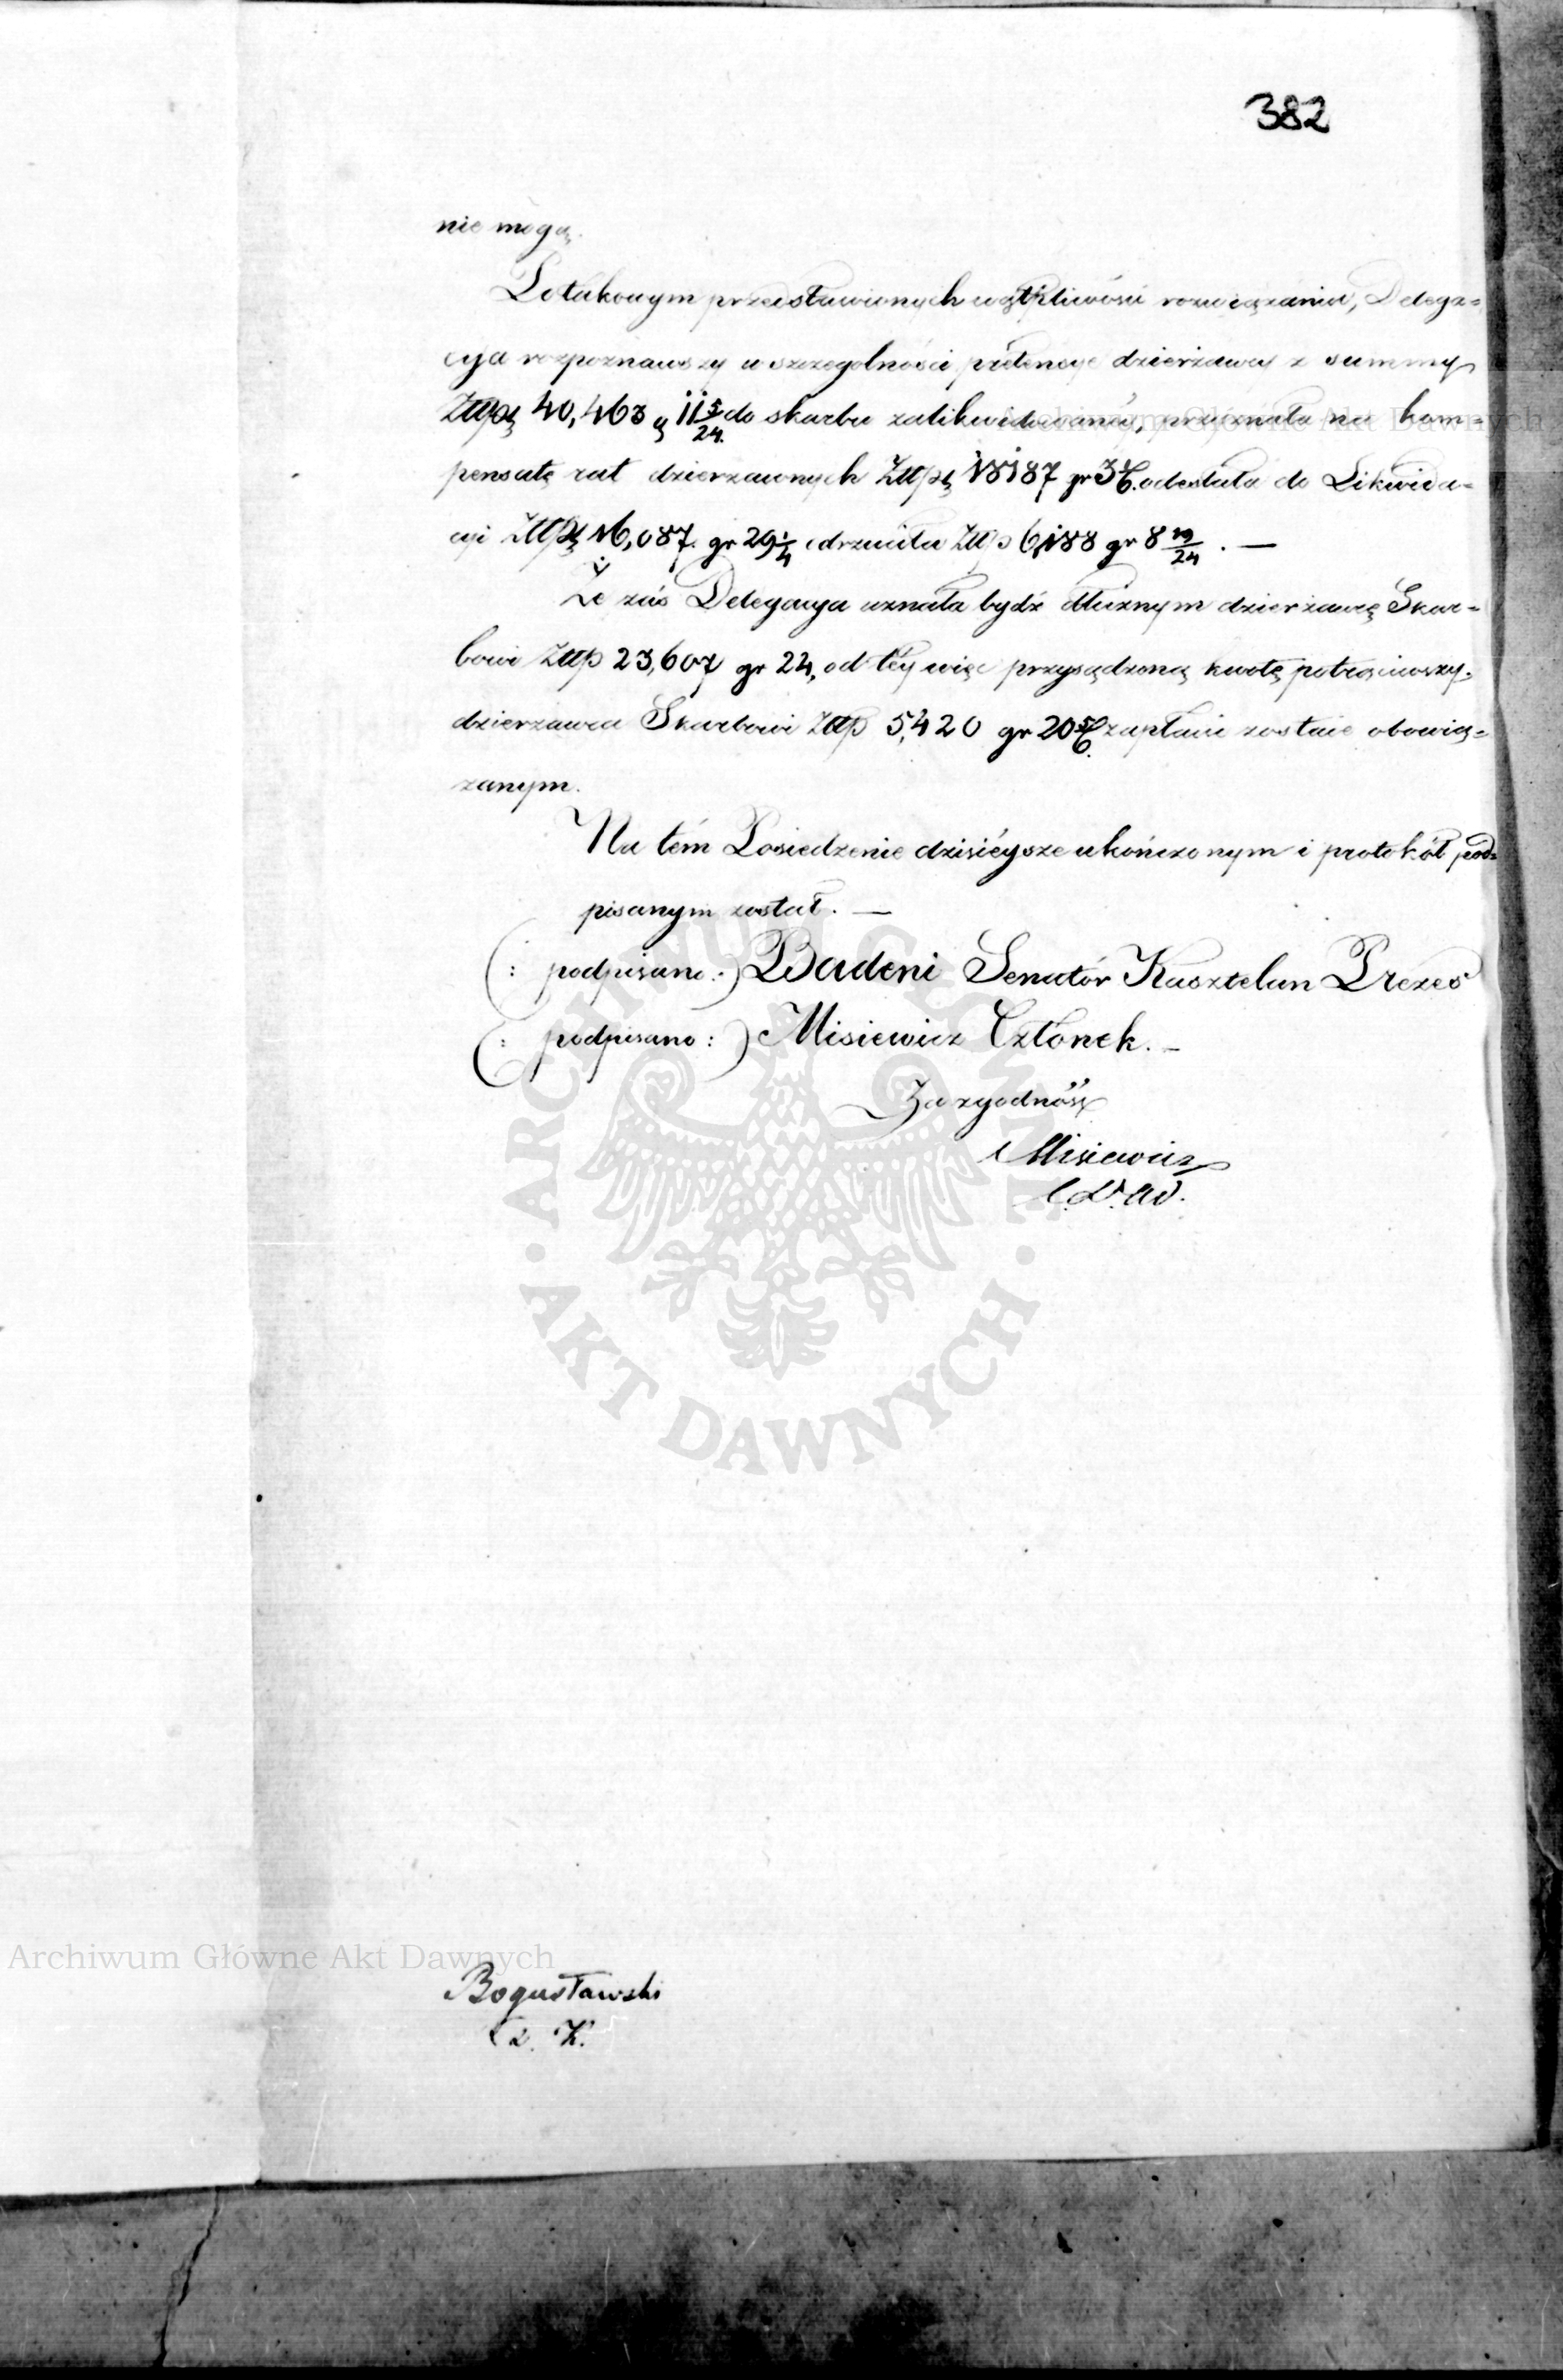 382
nie mogą.
Po takowym przedstawionych wątpliwości rozwiązaniu, Delega=
cyja rozpoznawszy w szczególności pretensye dzierżawcy z summy
Złłp 40,463 g 11 5/24 do skarbu zalikwidowaney, przyznała na kom=
pensatę rat dzierżawnych Złłp 18187 gr 3 odesłała do Likwida=
cyi Złłp 16,087 gr 29 1/4 odrzuciła Złłp 6,188 gr 8 19/24. —
Że zaś Delegacya uznała bydź dłużnym dzierżawcę Skar=
bowi Złłp 23,607 gr 24, od tey więc przysądzoną kwotę potrąciwszy,
dzierżawca Skarbowi Złłp 5,420 gr 20 5/6 zapłacić zostaie obowią=
zanym.
Na tém Posiedzenie dzisiéysze ukończonym i protokół pod=
pisanym został. —
(: podpisano :) Badeni Senatór Kasztelan Prezes
(: podpisano :) Misiewicz Członek. —
Za zgodność
Misiewicz
Bogusławski
Archiwum Główne Akt Dawnych
Archiwum Główne Akt Dawnych
ARCHIWUM GŁÓWNE · AKT DAWNYCH ·